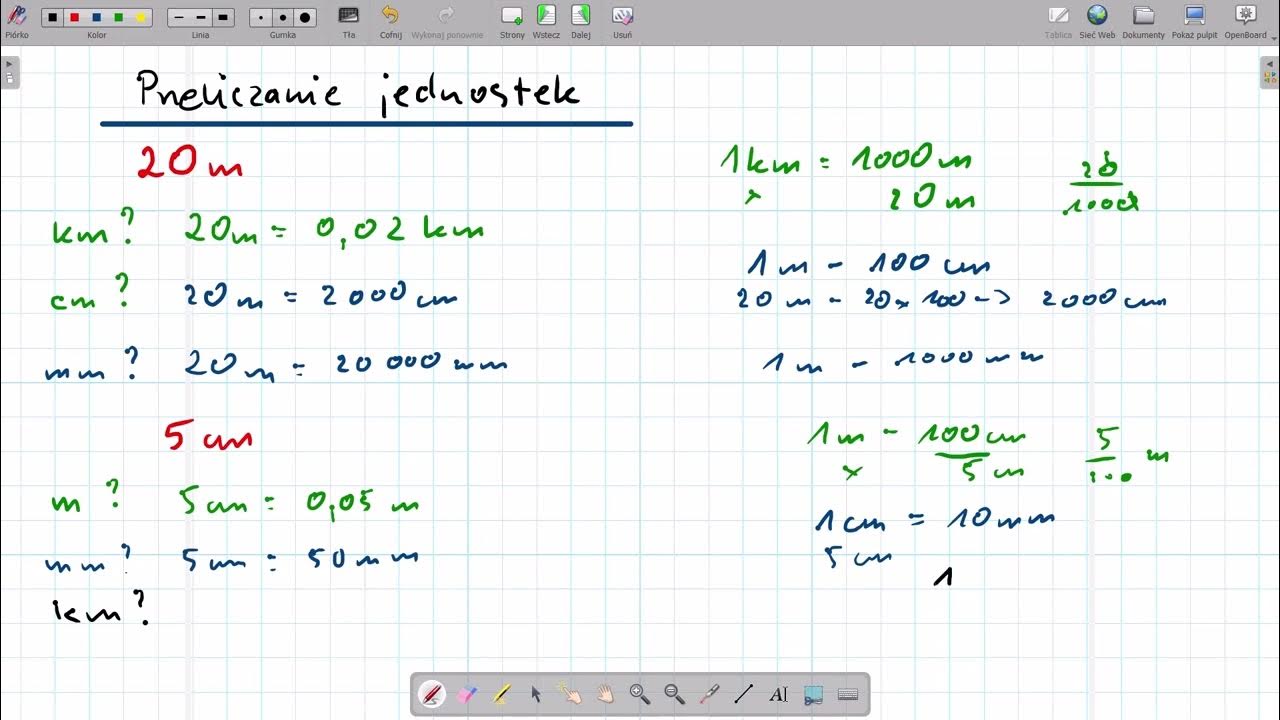 Piórko Kolor Linia Gumka Tła Cofnij Wykonaj ponownie Strony Wstecz Dalej Usuń Tablica Sieć Web Dokumenty Pokaż pulpit OpenBoard
Przeliczanie jednostek
20 m
km? 20 m = 0,02 km
cm? 20 m = 2 000 cm
mm? 20 m = 20 000 mm
5 cm
m? 5 cm = 0,05 m
mm? 5 cm = 50 mm
km?
1 km = 1000 m
x 20 m
20
1000
1 m - 100 cm
20 m - 20 x 100 -> 2000 cm
1 m - 1000 mm
1 m - 100 cm
x 5 cm
5
100 m
1 cm = 10 mm
5 cm
1
AI